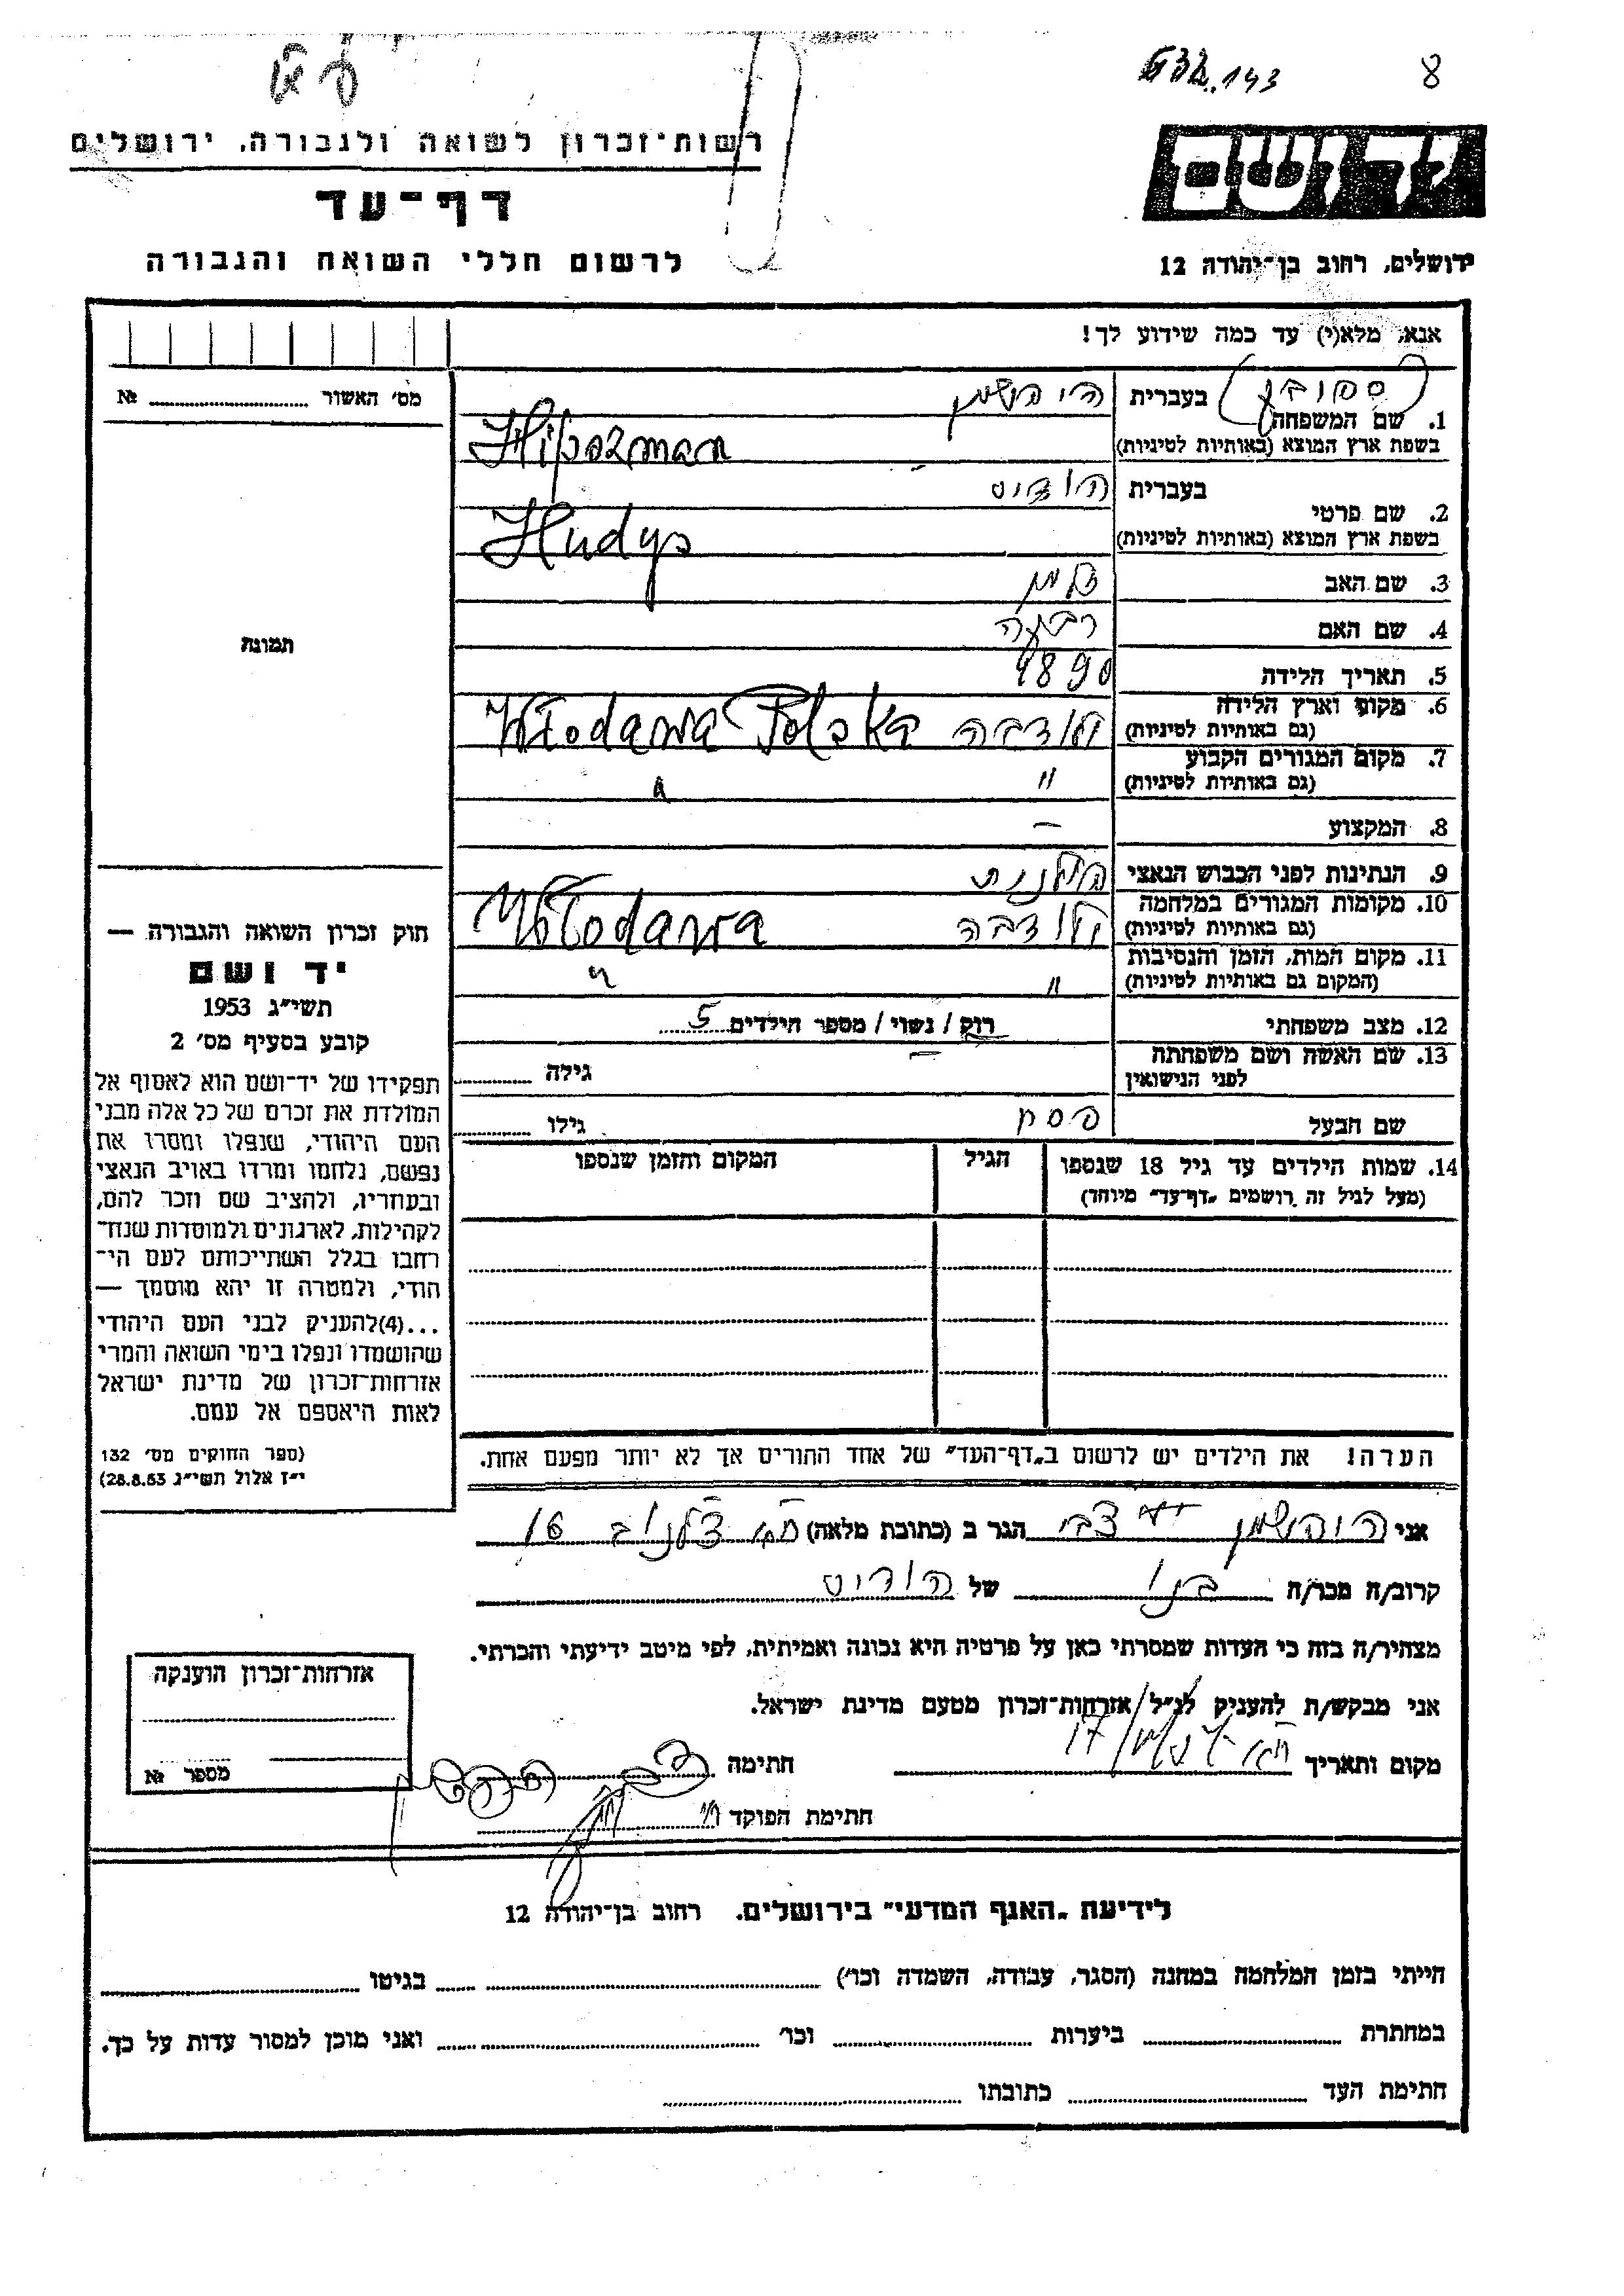 143 8
רשות־זכרון לשואה ולגבורה, ירושלים
יד ושם
דף־עד
לרשום חללי השואה והגבורה
ירושלים, רחוב בן־יהודה 12
אנא, מלא(י) עד כמה שידוע לך!
מס' האשור № 
בעברית
1. שם המשפחה
Hipszman
בשפת ארץ המוצא (באותיות לטיניות)
בעברית הודיס
2. שם פרטי
Hudys
בשפת ארץ המוצא (באותיות לטיניות)
3. שם האב זלמן
4. שם האם רבקה
5. תאריך הלידה 1890
6. מקום וארץ הלידה
(גם באותיות לטיניות) ולודבה Włodawa Polska
7. מקום המגורים הקבוע
(גם באותיות לטיניות) " "
8. המקצוע –
9. הנתינות לפני הכבוש הנאצי פולנית
10. מקומות המגורים במלחמה
(גם באותיות לטיניות) ולודבה Włodawa
11. מקום המות, הזמן והנסיבות
(המקום גם באותיות לטיניות) " "
12. מצב משפחתי רוק / נשוי / מספר הילדים 5
13. שם האשה ושם משפחתה
לפני הנישואין – גילה
שם הבעל פסח גילו
14. שמות הילדים עד גיל 18 שנספו הגיל המקום והזמן שנספו
(מעל לגיל זה רושמים "דף־עד" מיוחד)
הערה! את הילדים יש לרשום ב"דף־העד" של אחד ההורים אך לא יותר מפעם אחת.
תמונה
חוק זכרון השואה והגבורה —
יד ושם
תשי"ג 1953
קובע בסעיף מס' 2
תפקידו של יד־ושם הוא לאסוף אל
המולדת את זכרם של כל אלה מבני
העם היהודי, שנפלו ומסרו את
נפשם, נלחמו ומרדו באויב הנאצי
ובעוזריו, ולהציב שם וזכר להם,
לקהילות, לארגונים ולמוסדות שנח־
רחבו בגלל השתייכותם לעם הי־
הודי, ולמטרה זו יהא מוסמך —
...(4)להעניק לבני העם היהודי
שהושמדו ונפלו בימי השואה והמרי
אזרחות־זכרון של מדינת ישראל
לאות היאספם אל עמם.
(ספר החוקים מס' 132
י"ז אלול תשי"ג 28.8.53)
אני היפשמן צבי הגר ב (כתובת מלאה) 16
קרוב/ה מכר/ה בנו של הודיס
מצהיר/ה בזה כי העדות שמסרתי כאן על פרטיה היא נכונה ואמיתית, לפי מיטב ידיעתי והכרתי.
אני מבקש/ת להעניק לנ"ל אזרחות־זכרון מטעם מדינת ישראל.
מקום ותאריך חתימה
חתימת הפוקד
אזרחות־זכרון הוענקה
מספר №
לידיעת "האגף המדעי" בירושלים. רחוב בן־יהודה 12
הייתי בזמן המלחמה במחנה (הסגר, עבודה, השמדה וכו') בגיטו
במחתרת ביערות וכו' ואני מוכן למסור עדות על כך.
חתימת העד כתובתו